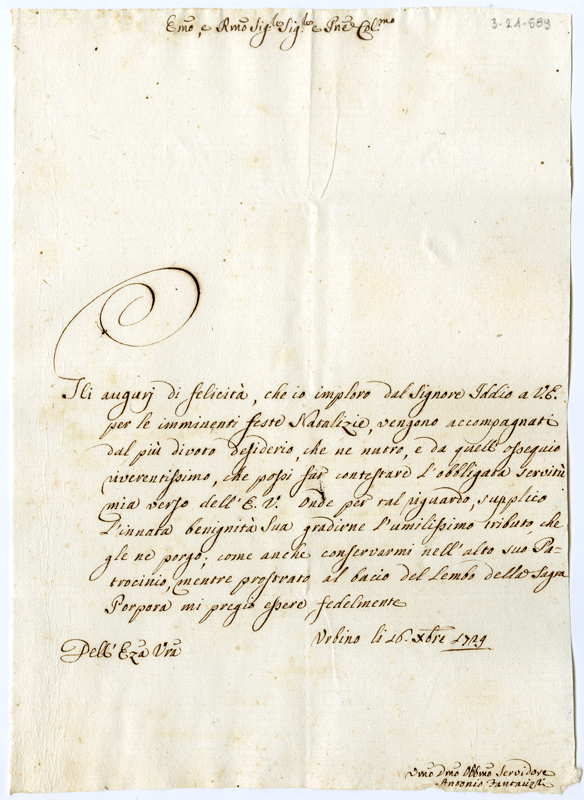 3-21-689
Emo, e Rmo Sig.re Sig.re e Pne Col.mo
Gli augurj di felicità, che io imploro dal Signore Iddio a V.E.
per le imminenti feste Natalizie, vengono accompagnati
dal più divoto desiderio, che ne nutro, e da quell'ossequio
riverentissimo, che possi far contestare l'obbligata servitù
mia verso dell'E.V. Onde per tal riguardo, supplico
l'innata benignità Sua gradirne l'umilissimo tributo, che
gle ne porgo, come anche conservarmi nell'alto suo Pa-
trocinio, mentre prostrato al bacio del Lembo della Sagra
Porpora mi pregio essere fedelmente
Urbino li 16. Xbre 1729
Dell'Eza Vra
Vmo Dmo Obbmo Servidore
Antonio